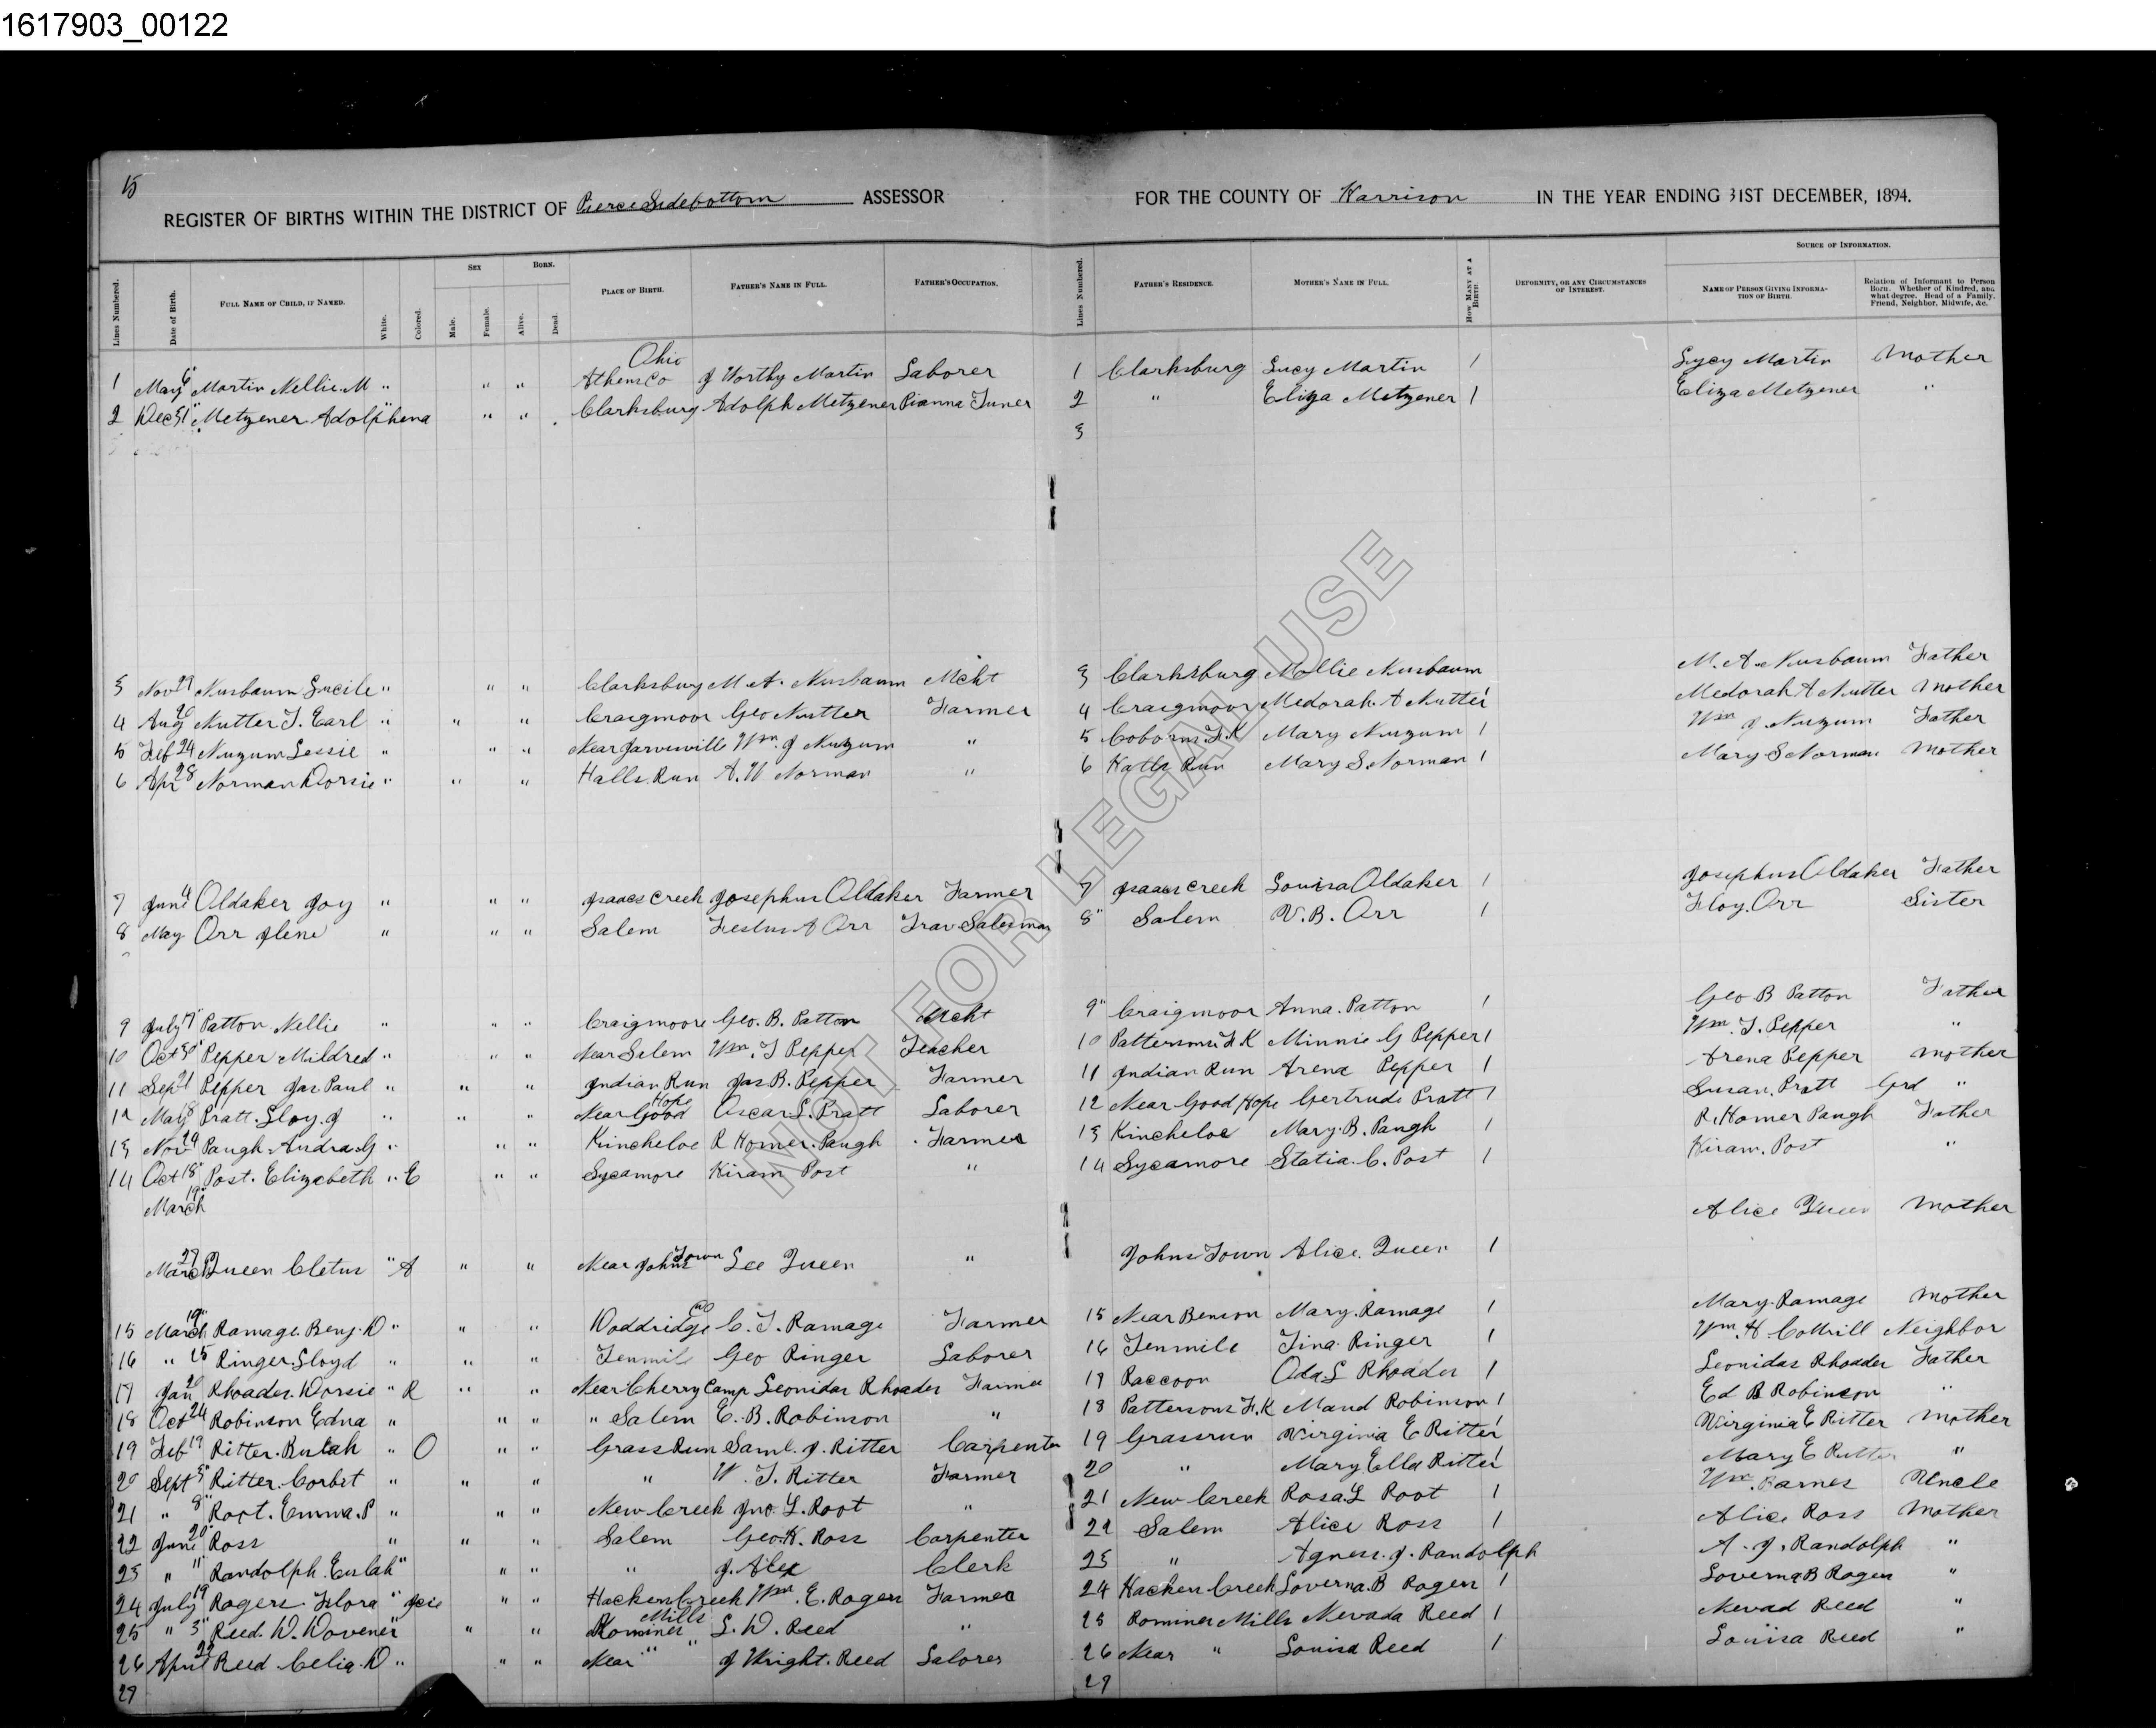 1617903_00122
15
REGISTER OF BIRTHS WITHIN THE DISTRICT OF Pierce Sidebottom ASSESSOR FOR THE COUNTY OF Harrison IN THE YEAR ENDING 31ST DECEMBER, 1894.
SOURCE OF INFORMATION.
SEX BORN.
Lines Numbered. Date of Birth. FULL NAME OF CHILD, IF NAMED. White. Colored. Male. Female. Alive. Dead. PLACE OF BIRTH. FATHER'S NAME IN FULL. FATHER'S OCCUPATION. Lines Numbered. FATHER'S RESIDENCE. MOTHER'S NAME IN FULL. HOW MANY AT A BIRTH. DEFORMITY, OR ANY CIRCUMSTANCES OF INTEREST. NAME OF PERSON GIVING INFORMATION OF BIRTH. Relation of Informant to Person Born. Whether of Kindred, and what degree. Head of a Family. Friend, Neighbor, Midwife, &c.
1 May 6" Martin Nellie. M " " " Athens Co Ohio J Worthy Martin Laborer 1 Clarksburg Lucy Martin 1 Lucy Martin Mother
2 Dec 31" Metzener Adolphena " " Clarksburg Adolph Metzener Pianna Tuner 2 " Eliza Metzener 1 Eliza Metzener "
3
3 Nov 29 Nusbaum Lucile " " " Clarksburg M. A. Nusbaum Mcht 3 Clarksburg Mollie Nusbaum M. A. Nusbaum Father
4 Aug 20 Nutter T. Earl " " " Craigmoor Geo Nutter Farmer 4 Craigmoor Medorah. A Nutter 1 Medorah A Nutter Mother
5 Feb 24 Nuzum Lessie " " " Near Jarvisville Wm. J Nuzum " 5 Coborns F.K Mary Nuzum 1 Wm J Nuzum Father
6 Apr 28 Norman Dorsie " " " Halls Run A. W Norman " 6 Halls Run Mary S Norman 1 Mary S Norman Mother
7 June 4 Oldaker Joy " " " Isaacs Creek Josephus Oldaker Farmer 7 Isaacs Creek Louisa Oldaker 1 Josephus Oldaker Father
8 May Orr Ilene " " " Salem Festus A Orr Trav Salesman 8" Salem V. B. Orr 1 Floy. Orr Sister
9 July 17" Patton Nellie " " " Craigmoore Geo. B. Patton Mcht 9" Craigmoor Anna. Patton 1 Geo B Patton Father
10 Oct 30" Pepper Mildred " " " Near Salem Wm. T Pepper Teacher 10 Pattersons F.K Minnie G Pepper 1 Wm. T. Pepper "
11 Sep 21 Pepper Jas Paul " " " Indian Run Jas B. Pepper Farmer 11 Indian Run Arena Pepper 1 Arena Pepper Mother
12 May 18 Pratt. Floy. J " " " Near Good Hope Oscar L. Pratt Laborer 12 Near Good Hope Gertrude Pratt 1 Susan. Pratt Grd "
13 Nov 29 Paugh Audra. G " " " Kincheloe R Homer. Paugh Farmer 13 Kincheloe Mary. B. Paugh 1 R. Homer Paugh Father
14 Oct 18" Post. Elizabeth " E " " Sycamore Hiram Post " 14 Sycamore Statia. C. Post 1 Hiram. Post "
March 19"
Alice Queen Mother
March 27 Queen Cletus " A " " Near Johns Town Lee Queen " Johns Town Alice. Queen 1
15 March 19" Ramage. Benj. D " " " Doddridge Co C. T. Ramage Farmer 15 Near Benson Mary. Ramage 1 Mary. Ramage Mother
16 " 15 Ringer. Lloyd " " " Tenmile Geo Ringer Laborer 16 Tenmile Tina Ringer 1 Wm. H Cottrill Neighbor
17 Jan 20 Rhoades. Dorsie " R " " Near Cherry Camp Leonidas Rhoades Farmer 17 Raccoon Oda L Rhoades 1 Leonidas Rhoades Father
18 Oct 24 Robinson Edna " " " " Salem E. B. Robinson " 18 Pattersons F.K Maud Robinson 1 Ed B Robinson "
19 Feb 19 Ritter. Beulah " O " " Grass Run Saml. J. Ritter Carpenter 19 Grassrun Virginia E Ritter 1 Virginia E Ritter Mother
20 Sept 3" Ritter. Corbet " " " " W. T. Ritter Farmer 20 " Mary Ella Ritter 1 Mary E Ritter "
21 " 8" Root. Emma. P " " " New Creek Jno. L. Root " 21 New Creek Rosa L Root 1 Wm. Barnes Uncle
22 June 20" Ross " " " Salem Geo. H. Ross Carpenter 22 Salem Alice Ross 1 Alice Ross Mother
23 " 11" Randolph. Eulah " " " " J. Alex Clerk 23 " Agness. J. Randolph A. J. Randolph "
24 July 19 Rogers. Flora " " " Hackers Creek Wm. E. Rogers Farmer 24 Hackers Creek Loverna. B Rogers 1 Loverna B Rogers "
25 " 3" Reed. W. Dovener " " " Rominer Mills L. D. Reed " 25 Romines Mills Nevada Reed 1 Nevad Reed "
26 April 22 Reed Celia. D " " " Near " " J Wright. Reed Laborer 26 Near " Louisa Reed 1 Louisa Reed "
27 27
NOT FOR LEGAL USE